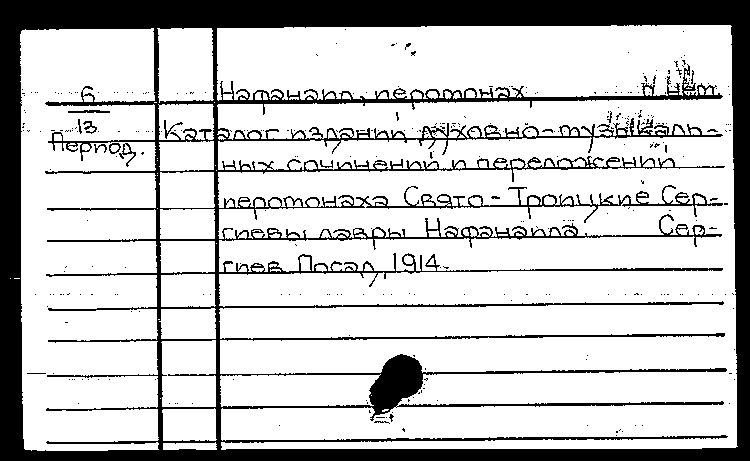 6
13
Период.
Нафанаил, иеромонах,
и нет
Каталог изданий духовно-музыкаль-
ных сочинений и переложений
иеромонаха Свято-Троицкие Сер-
гиевы лавры Нафанаила. Сер-
гиев Посад, 1914.